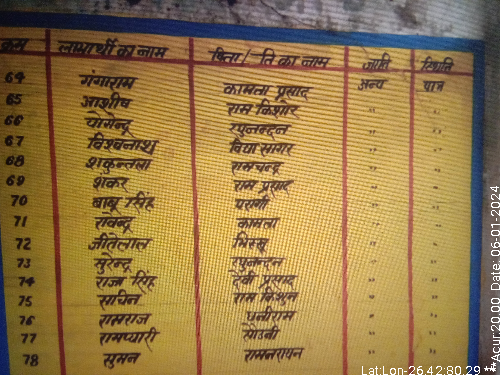 क्रम लाभार्थी का नाम पिता/ति का नाम जाति स्थिति
64 गंगाराम कामता प्रसाद अन्य पात्र
65 आशीष राम किशोर " "
66 योगेन्द्र रघुनन्दन " "
67 विश्वनाथ विद्या सागर " "
68 शकुन्तला रामचन्द्र " "
69 शंकर राम प्रसाद " "
70 बाबू सिंह " "
71 रावेन्द्र कामता " "
72 जीतेलाल भिख्खू " "
73 सुरेन्द्र रघुनन्दन " "
74 राजा सिंह देवी प्रसाद " "
75 सचिन राम किशुन " "
76 रामराज धनीराम " "
77 रामप्यारी " "
78 सुमन रामनरायन " "
Lat:Lon-26.42:80.29 **Acur:20.00, Date: 06-01-2024